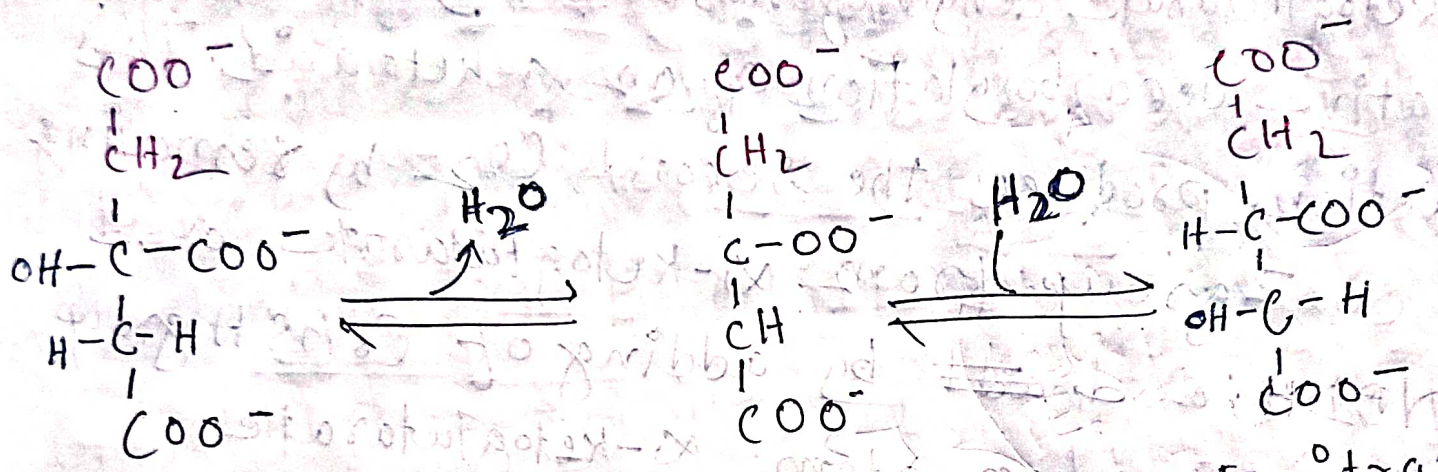 COO⁻
CH₂
OH-C-COO⁻
H-C-H
COO⁻
H₂O
COO⁻
CH₂
C-OO⁻
CH
COO⁻
H₂O
COO⁻
CH₂
H-C-COO⁻
OH-C-H
COO⁻